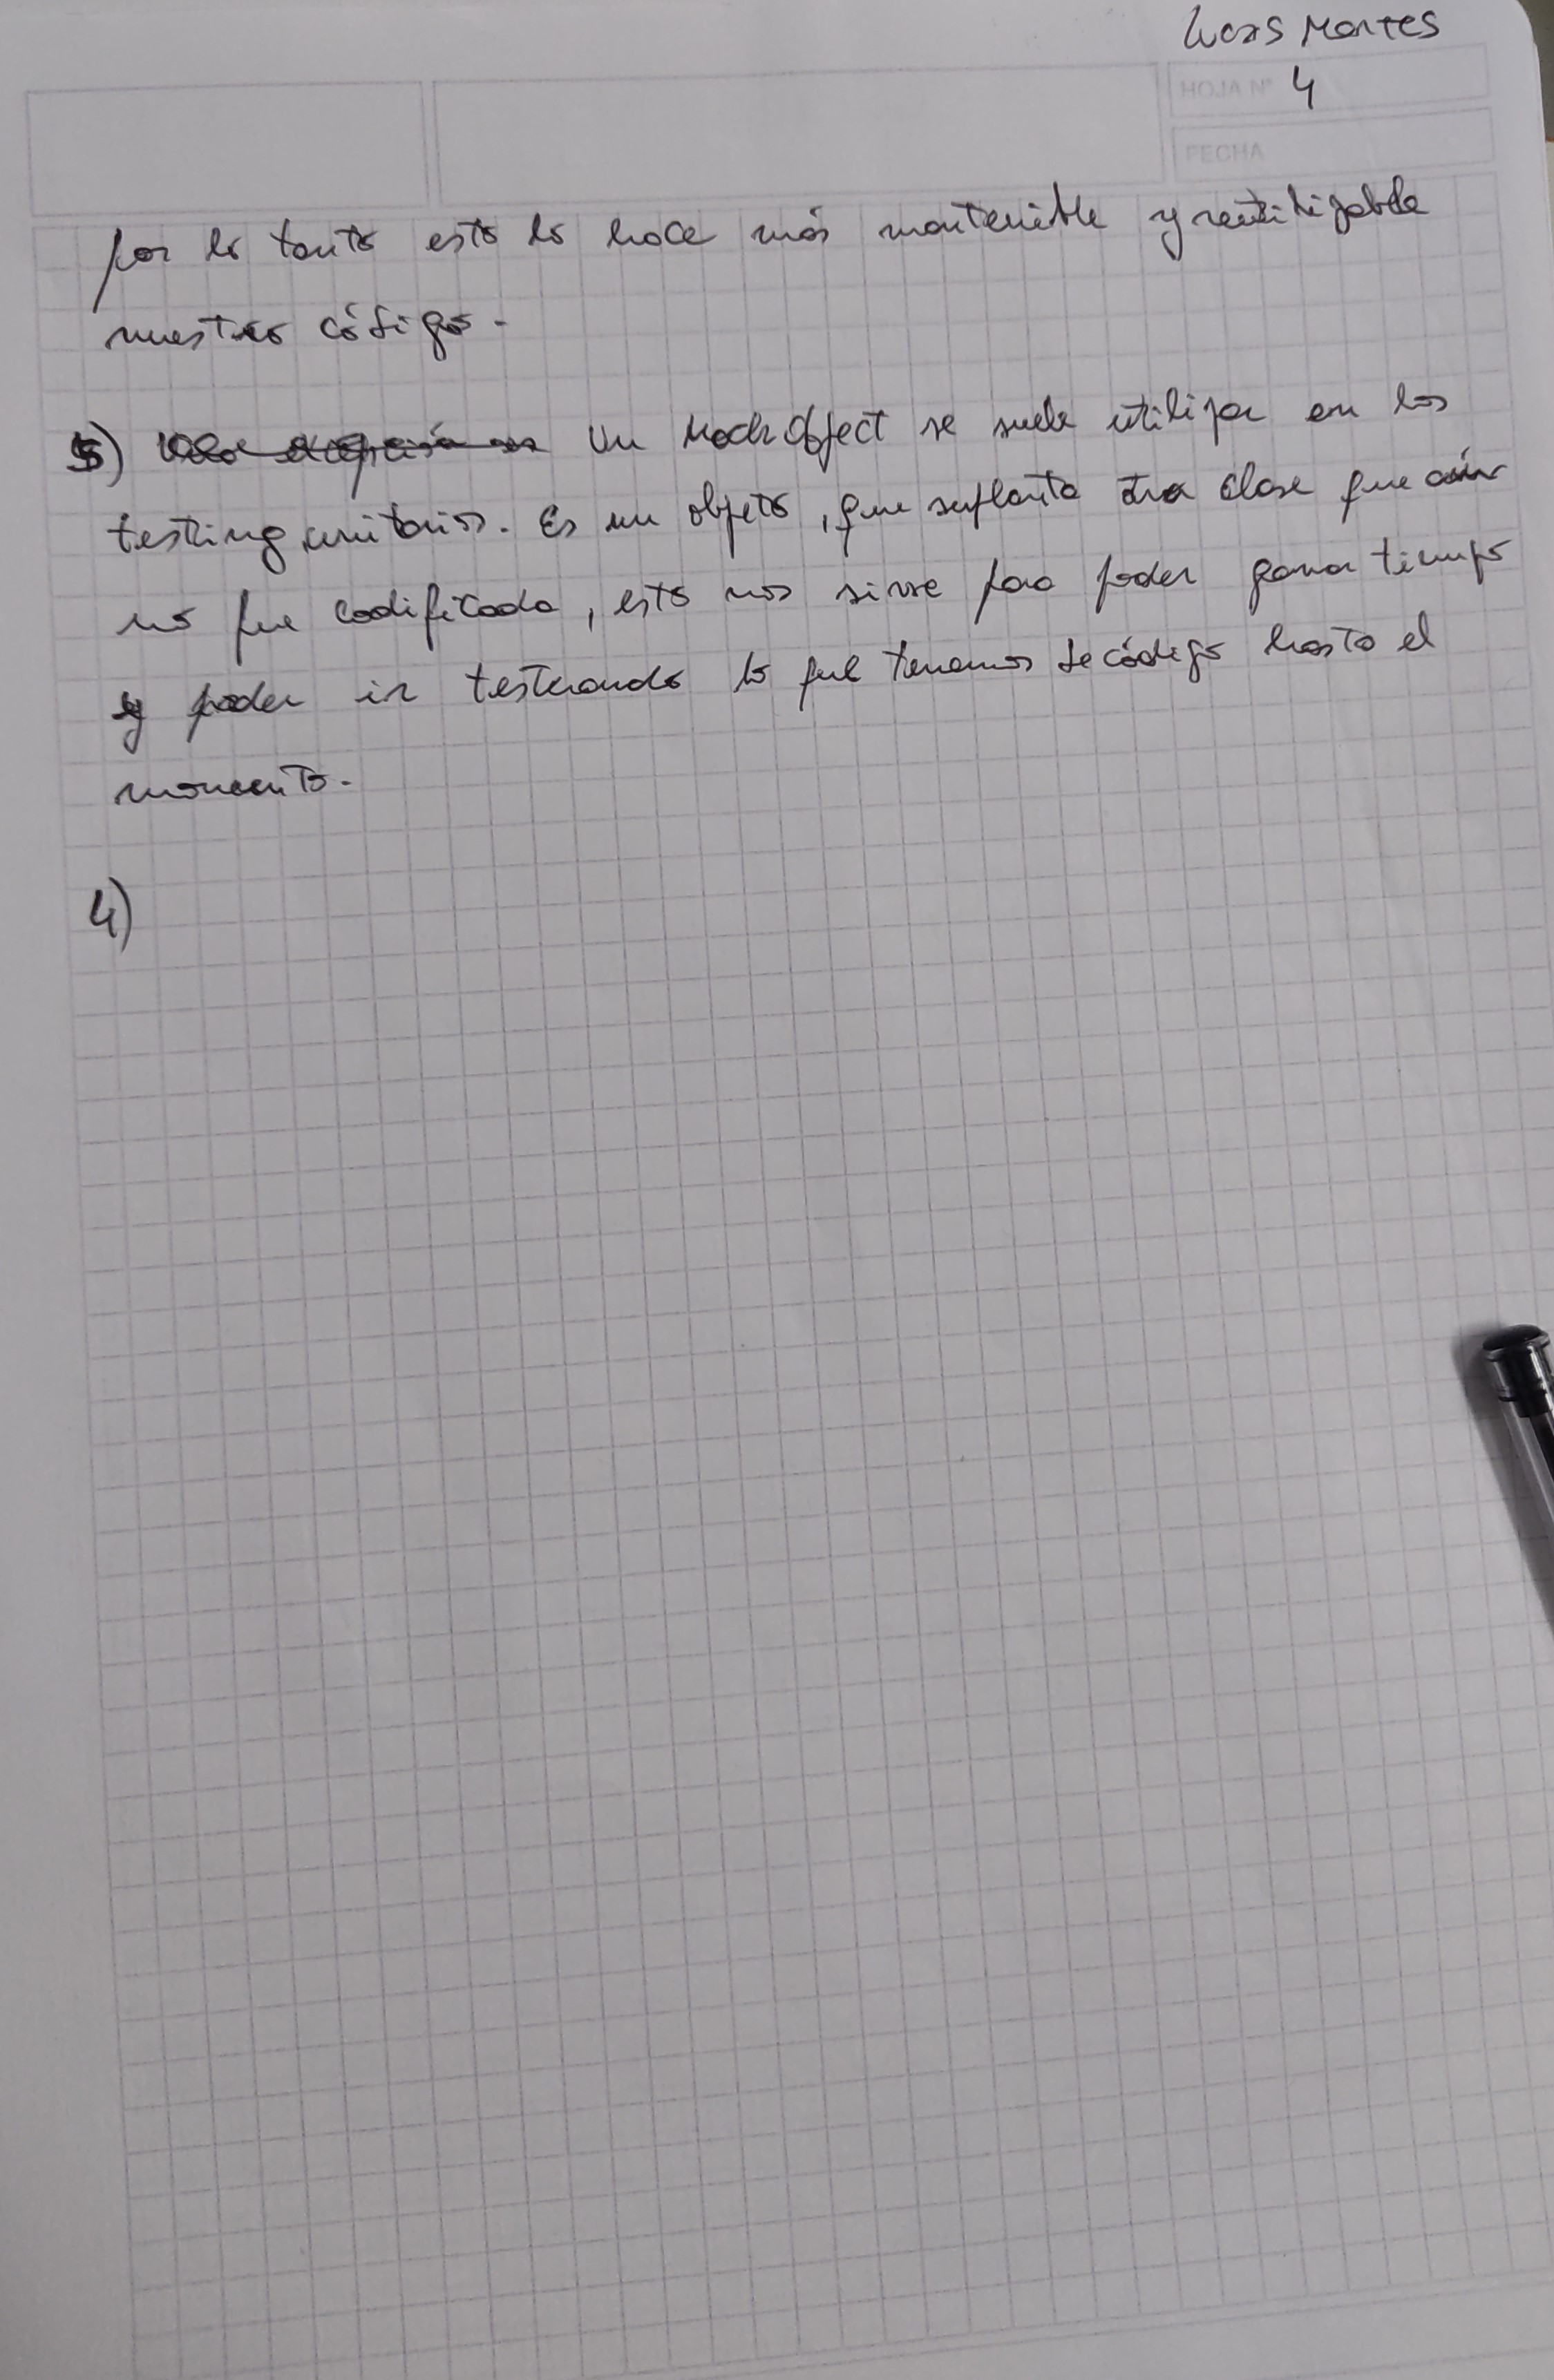 Lucas Montes
HOJA N° 4
FECHA
por lo tanto esto lo hace más mantenible y reutilizable
nuestro código.
5) Un MockObject se suele utilizar en los
testing unitarios. Es un objeto, que suplanta otra clase que aún
no fue codificada, esto nos sirve para poder ganar tiempo
y poder ir testeando lo que tenemos de código hasta el
momento.
4)